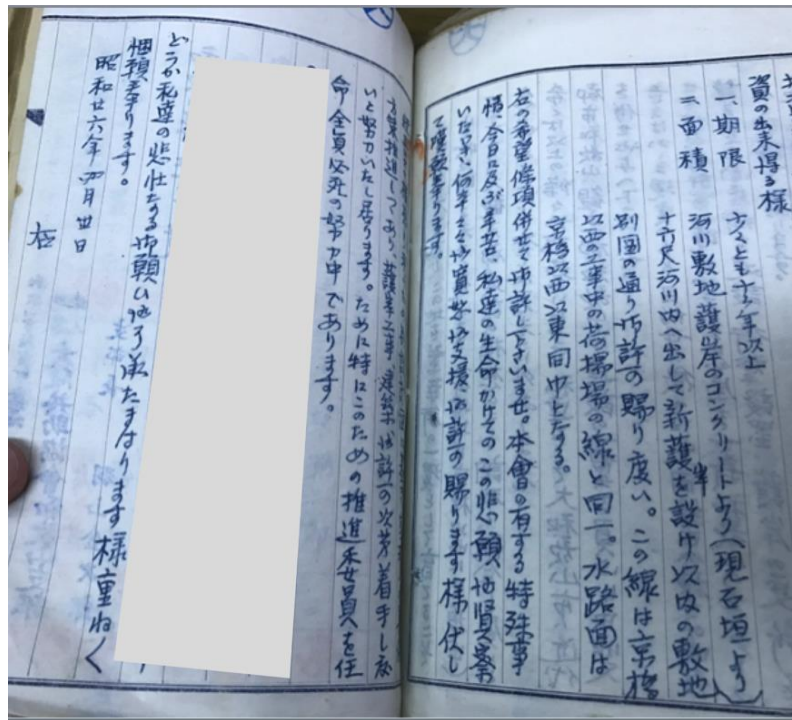 資の出来得る様
一、期限 少くとも十ヶ年以上
二、面積 河川敷地護岸のコンクリートより(現石垣より)
十六尺河川内へ出して新護岸を設け以内の敷地
別図の通り御許可賜り度い。この線は京橋
以西の工事中の荷揚場の線と同一。水路面は
京橋以西以東同巾となる。
右の希望條項併せて御許し下さいませ。本會の有する特殊事
情、今日に及ぶ辛苦、私達の生命かけてのこの悲願御賢察
いただき、何卒御寛大御支援、御許可賜ります様伏し
て懇願奉ります。
推進しつゝあり、護岸工事、建築御許可の次第着手し度
いと努力いたし居ります。ために特にこのための推進委員を任
命全員必死の努力中であります。
どうか私達の悲壮なる御願ひ御了承たまはります様重ねて
懇願奉ります。
昭和廿六年四月廿日
右